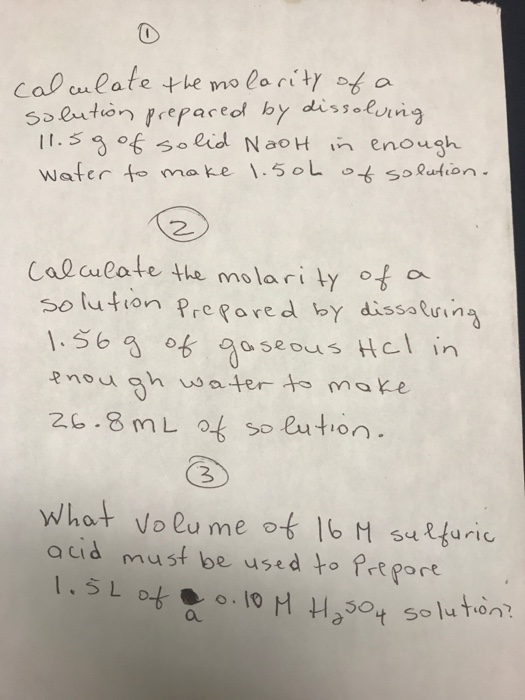 1
Calculate the molarity of a
solution prepared by dissolving
11.5 g of solid NaOH in enough
water to make 1.50L of solution.
2
Calculate the molarity of a
solution Prepared by dissolving
1.56 g of gaseous HCl in
enough water to make
26.8 mL of solution.
3
What volume of 16 M sulfuric
acid must be used to Prepare
1.5 L of a 0.10 M H₂SO₄ solution?